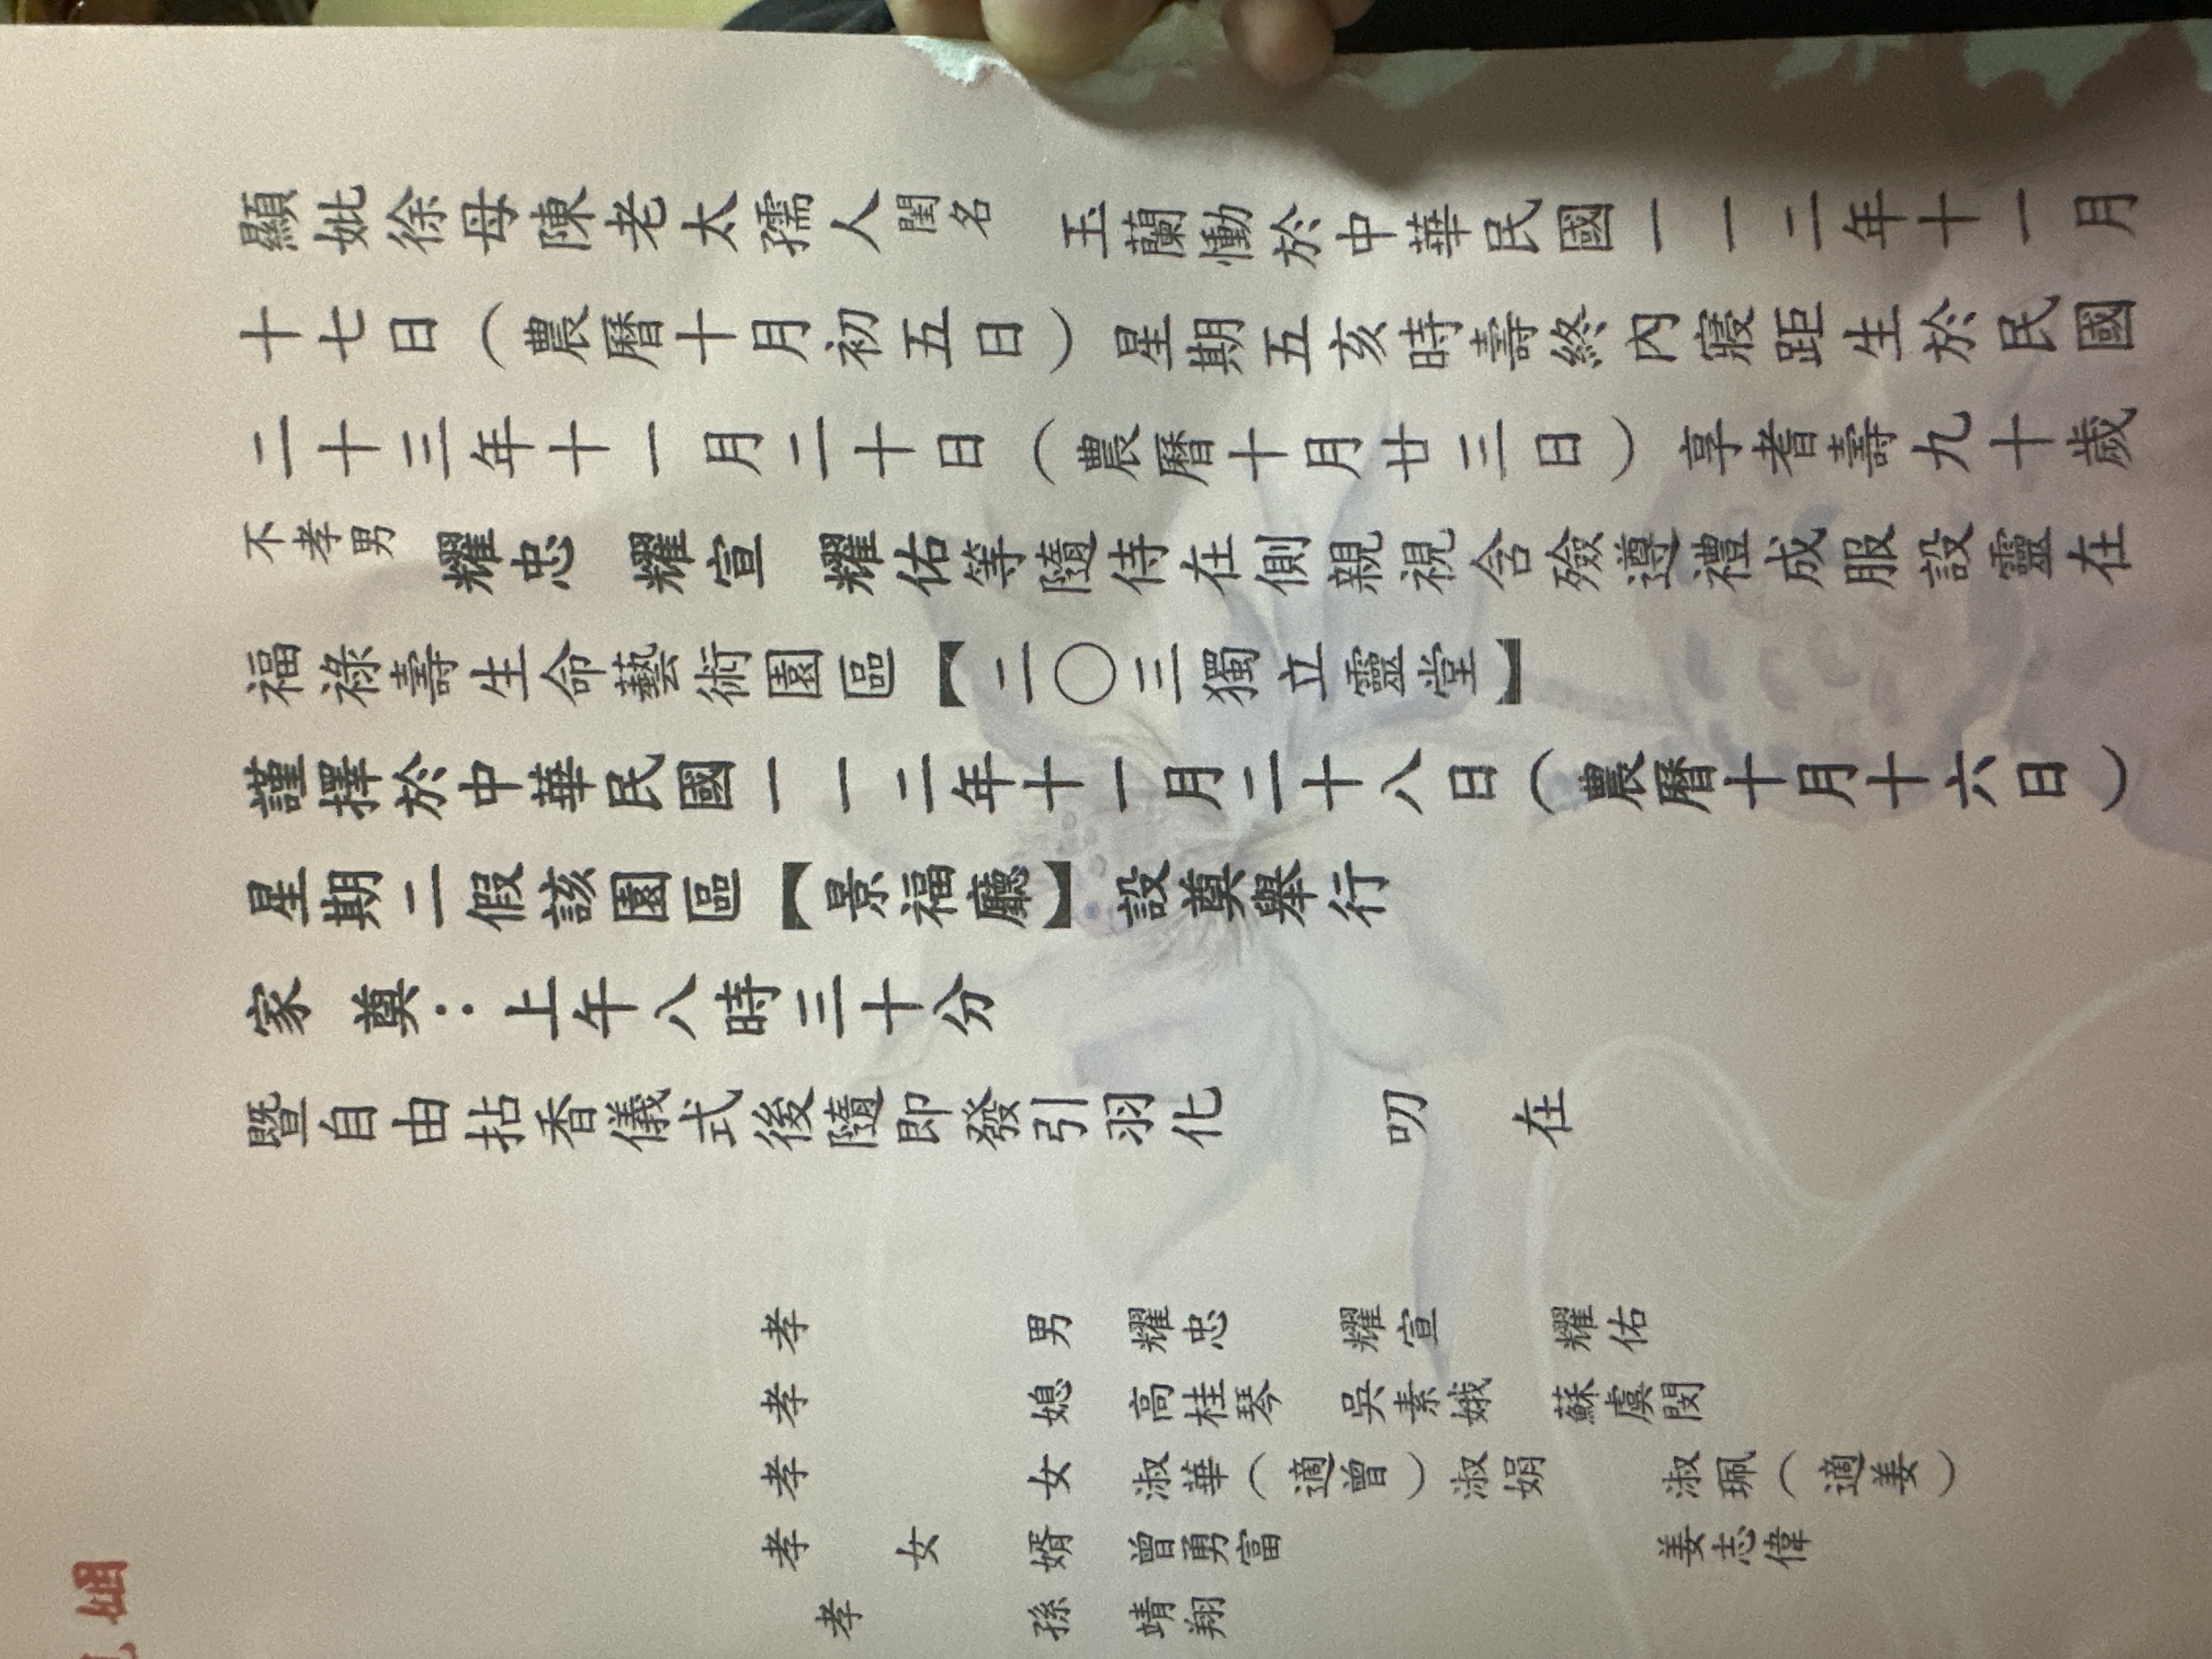 顯妣徐母陳老太孺人閨名 玉蘭慟於中華民國一一二年十一月
十七日（農曆十月初五日）星期五亥時壽終內寢距生於民國
二十三年十一月二十日（農曆十月廿三日）享耆壽九十歲
不孝男 耀忠 耀宣 耀佑等隨侍在側親視含殮遵禮成服設靈在
福祿壽生命藝術園區【二〇三獨立靈堂】
謹擇於中華民國一一二年十一月二十八日（農曆十月十六日）
星期二假該園區【景福廳】設奠舉行
家 奠：上午八時三十分
暨自由拈香儀式後隨即發引羽化 叨 在
孝 男 耀忠 耀宣 耀佑
孝 媳 高桂琴 吳素娥 蘇虞閔
孝 女 淑華（適曾）淑娟 淑珮（適姜）
孝 女 婿 曾勇富 姜志偉
孝 孫 靖翔
姻